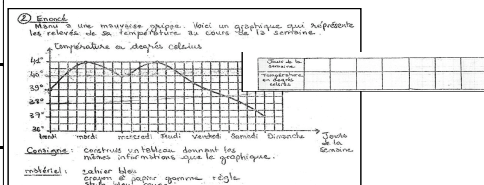 ② Enoncé
Manu a une mauvaise grippe. Voici un graphique qui représente
les relevés de sa température au cours de la semaine.
Température en degrés celsius
41°
40°
39°
38°
37°
36°
lundi mardi mercredi Jeudi Vendredi Samedi Dimanche
Jours
de la
semaine
Jours de la
semaine
Température
en degrés
celsius
Consigne : construis un tableau donnant les
mêmes informations que le graphique.
matériel : cahier bleu
crayon à papier gomme règle
stylo bleu